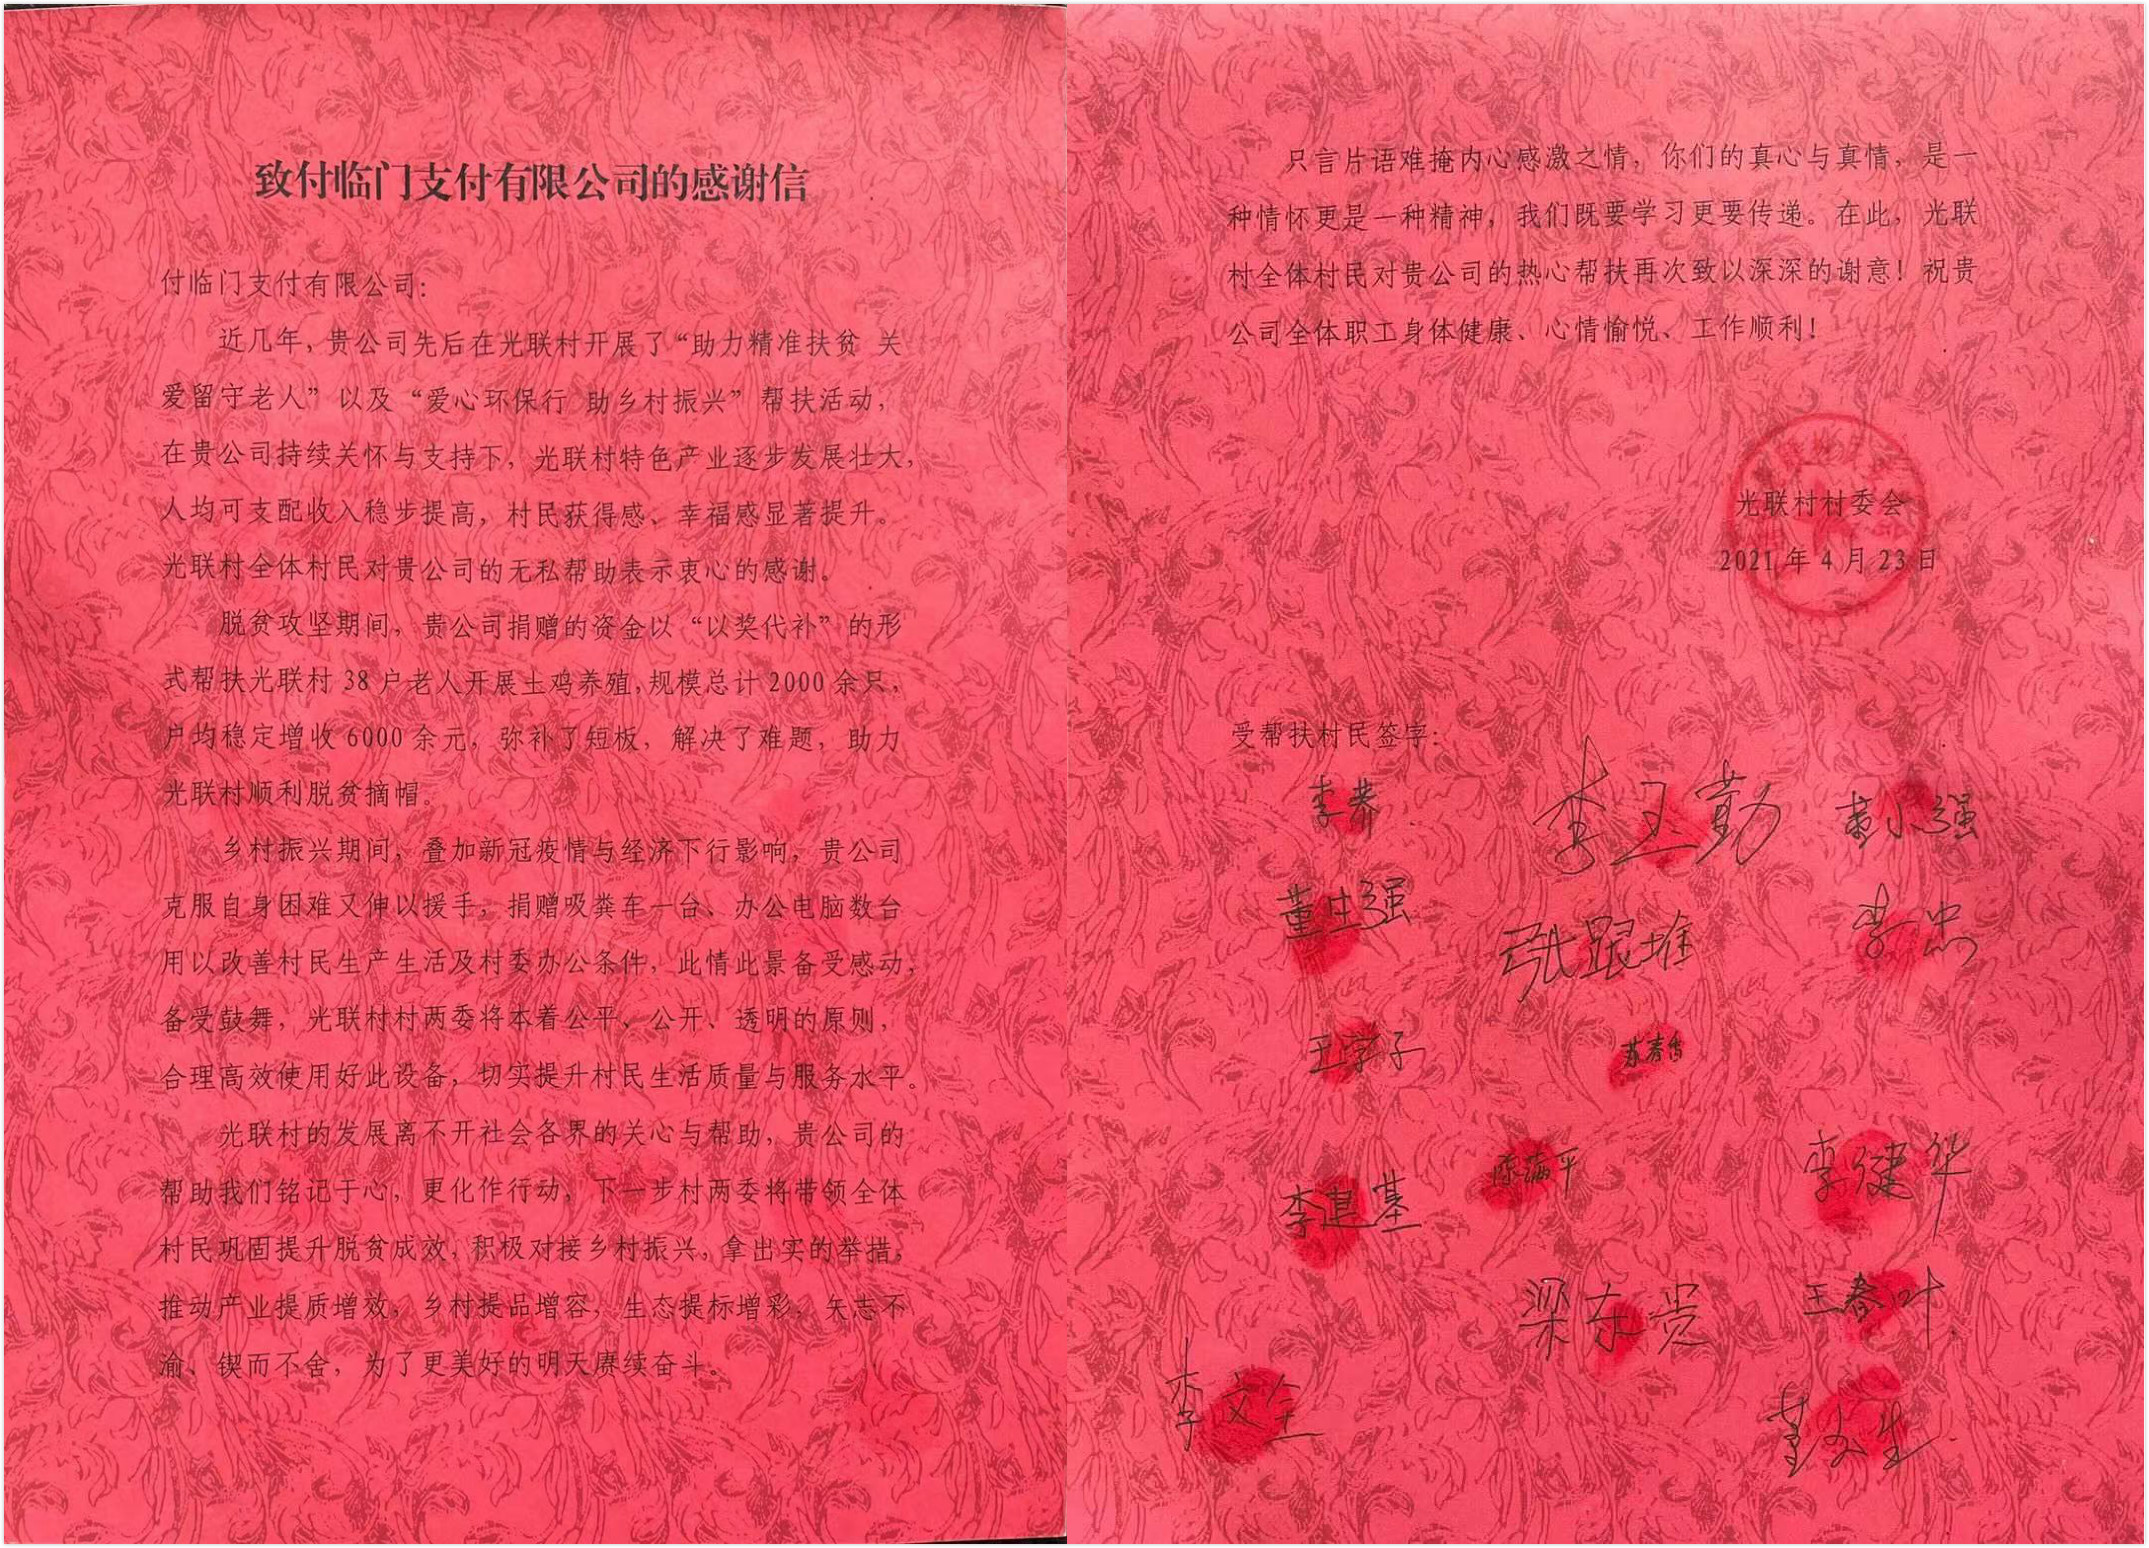 致付临门支付有限公司的感谢信
付临门支付有限公司:
近几年,贵公司先后在光联村开展了“助力精准扶贫 关
爱留守老人”以及“爱心环保行 助乡村振兴”帮扶活动,
在贵公司持续关怀与支持下,光联村特色产业逐步发展壮大,
人均可支配收入稳步提高,村民获得感、幸福感显著提升。
光联村全体村民对贵公司的无私帮助表示衷心的感谢。
脱贫攻坚期间,贵公司捐赠的资金以“以奖代补”的形
式帮扶光联村 38 户老人开展土鸡养殖,规模总计 2000 余只,
户均稳定增收 6000 余元,弥补了短板,解决了难题,助力
光联村顺利脱贫摘帽。
乡村振兴期间,叠加新冠疫情与经济下行影响,贵公司
克服自身困难又伸以援手,捐赠吸粪车一台、办公电脑数台
用以改善村民生产生活及村委办公条件,此情此景备受感动,
备受鼓舞,光联村村两委将本着公平、公开、透明的原则,
合理高效使用好此设备,切实提升村民生活质量与服务水平。
光联村的发展离不开社会各界的关心与帮助,贵公司的
帮助我们铭记于心,更化作行动,下一步村两委将带领全体
村民巩固提升脱贫成效,积极对接乡村振兴,拿出实的举措,
推动产业提质增效,乡村提品增容,生态提标增彩,矢志不
渝、锲而不舍,为了更美好的明天赓续奋斗。
只言片语难掩内心感激之情,你们的真心与真情,是一
种情怀更是一种精神,我们既要学习更要传递。在此,光联
村全体村民对贵公司的热心帮扶再次致以深深的谢意!祝贵
公司全体职工身体健康、心情愉悦、工作顺利!
光联村村委会
2021 年 4 月 23 日
受帮扶村民签字:
李养 李玉勤 董小强
董生强 张跟堆 李忠
王字子 苏春香
李建基 陈满平 李健华
梁东贵 王春叶
李文全 董文生